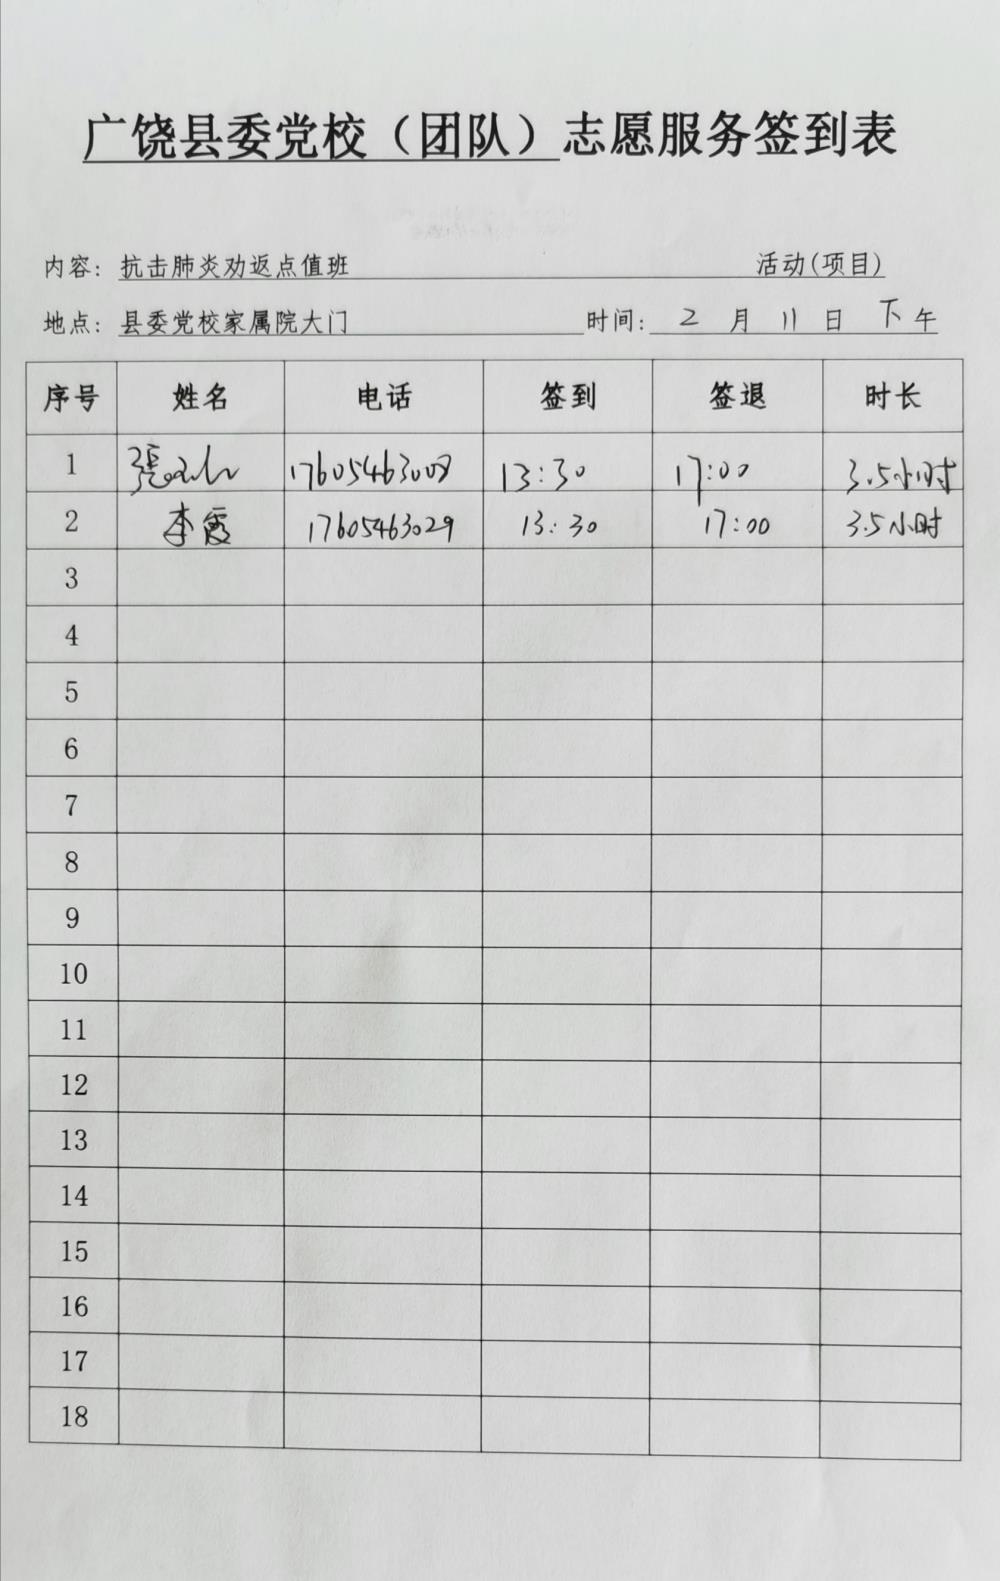 广饶县委党校（团队）志愿服务签到表
内容：抗击肺炎劝返点值班 活动(项目)
地点：县委党校家属院大门 时间：2月11日下午
序号 姓名 电话 签到 签退 时长
1 張 13:30 17:00 3.5小时
2 李霞 17605463029 13:30 17:00 3.5小时
3
4
5
6
7
8
9
10
11
12
13
14
15
16
17
18